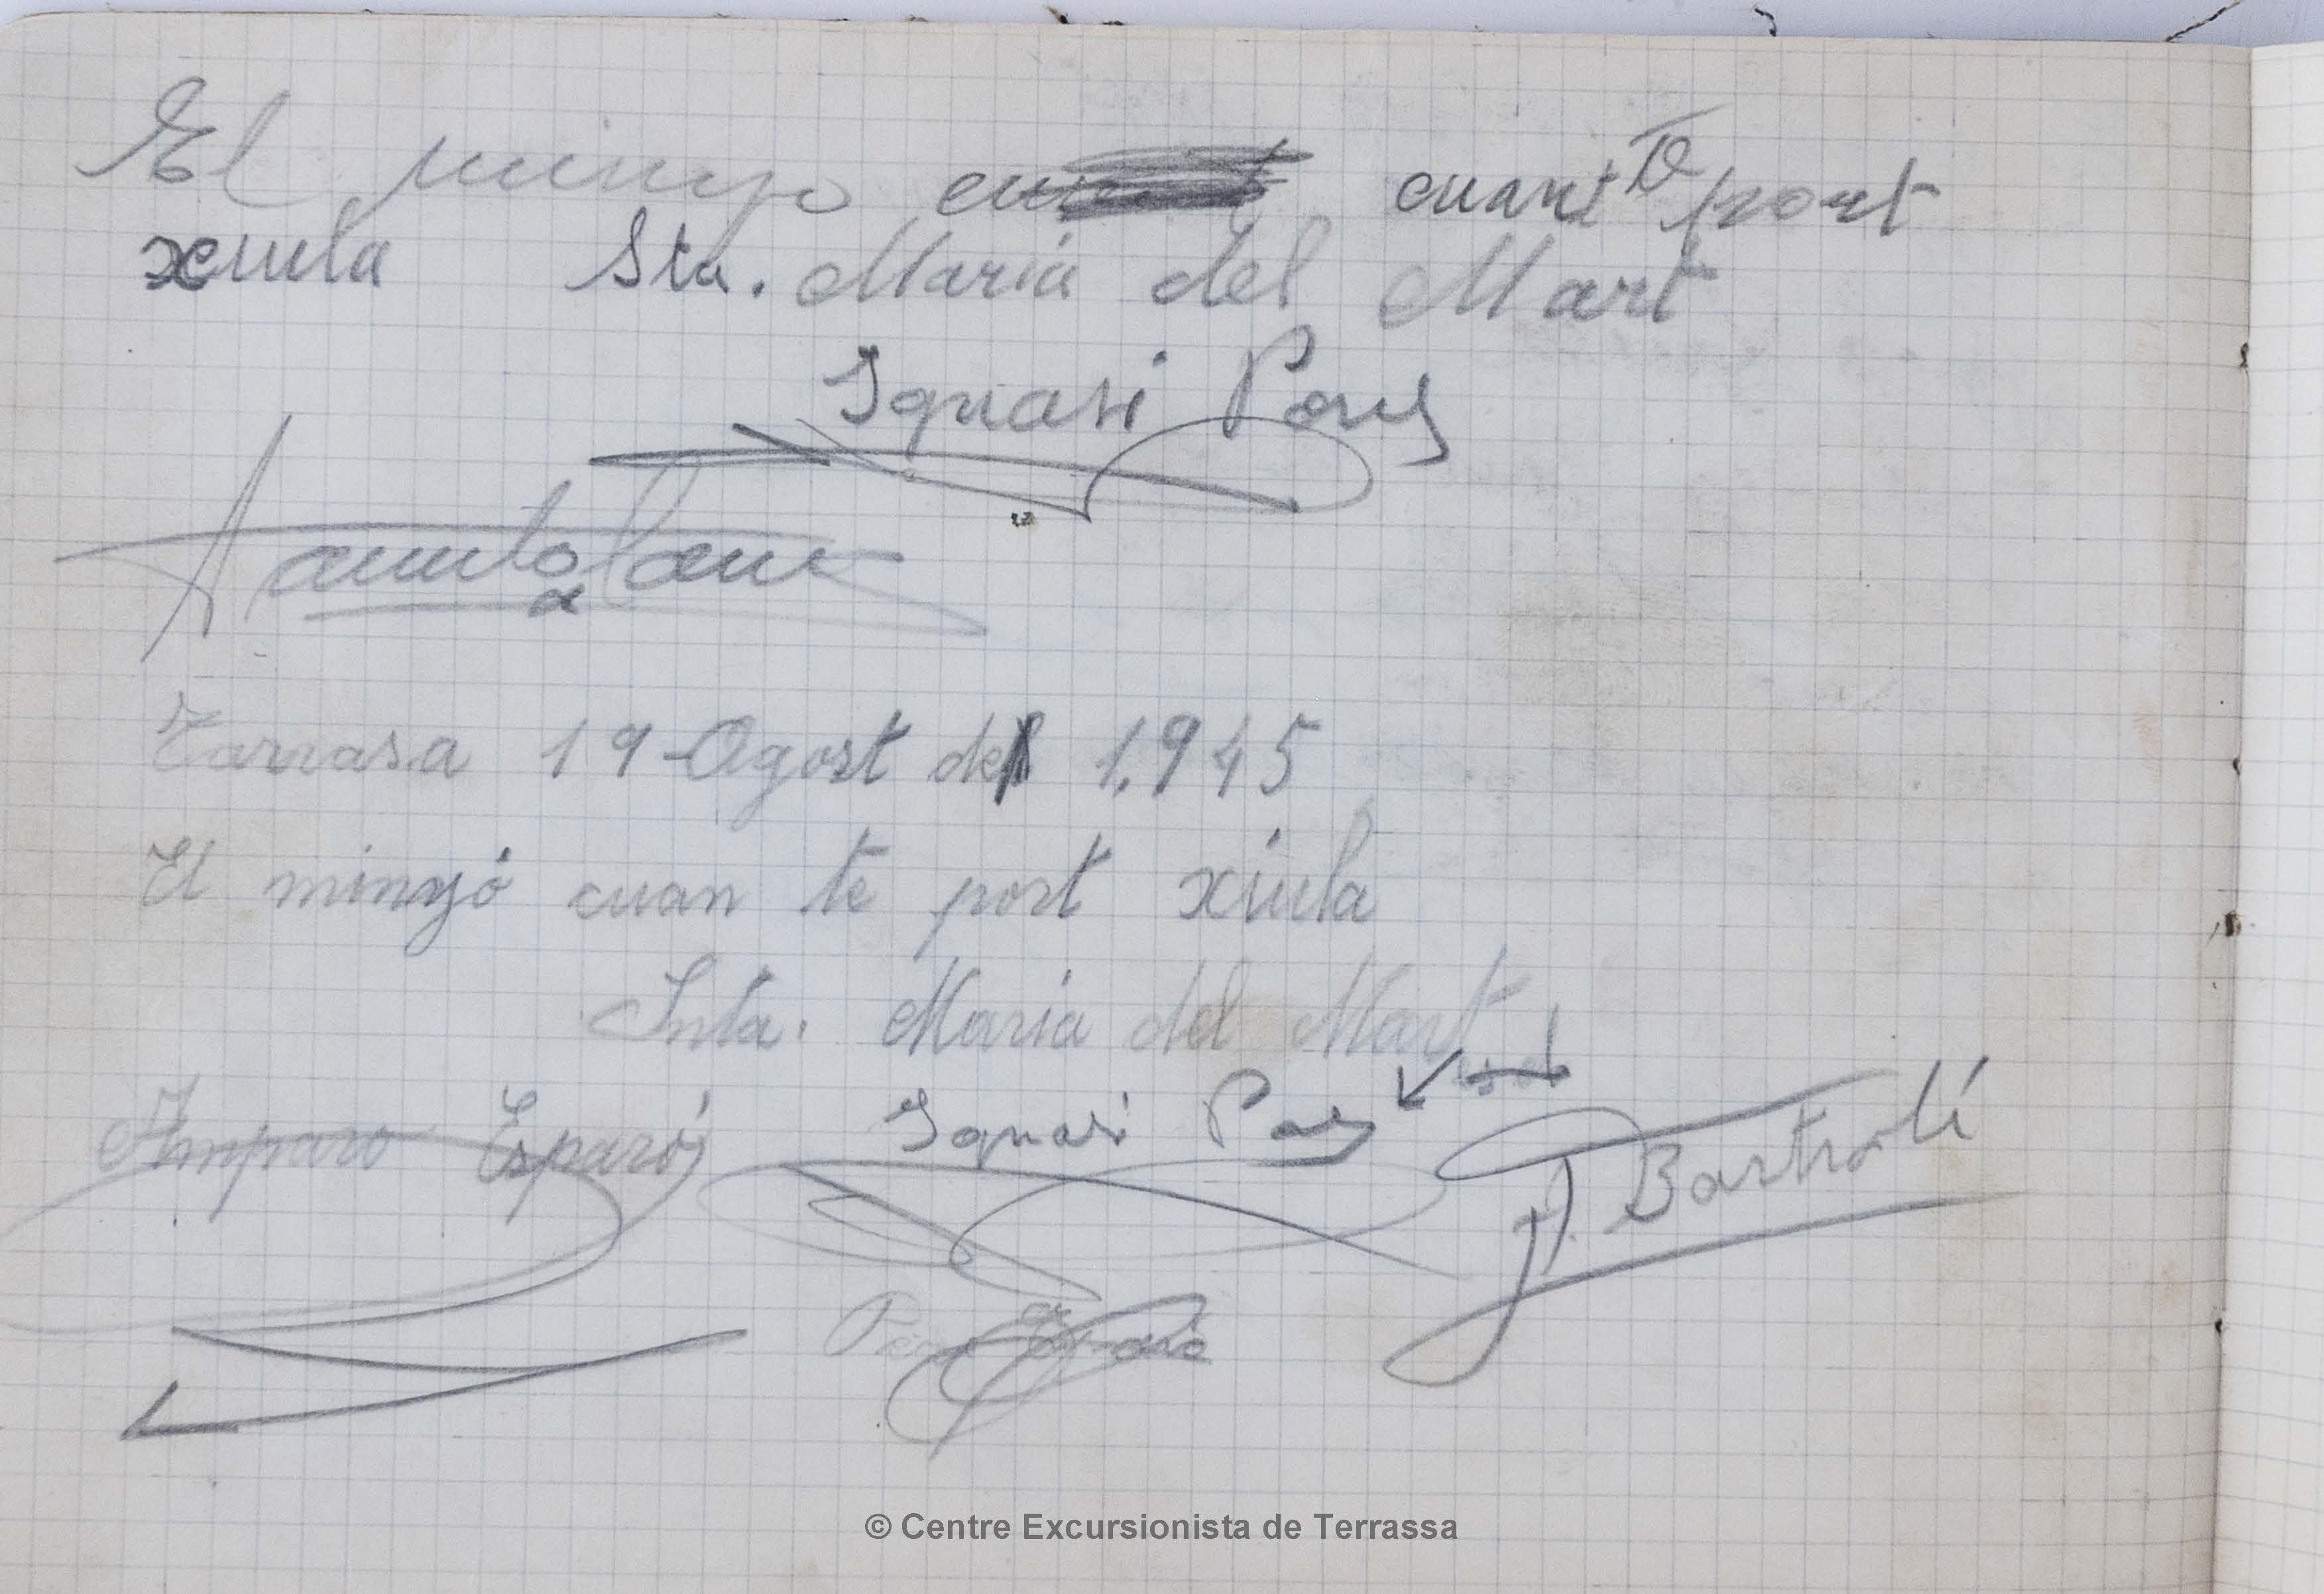 El minyo cuant te port
xiula Sta. Maria del Mart
Ignasi Pons
Tarrasa 19-Agost del 1.945
El minyó cuan te port xiula
Snta. Maria del Mart
Amparo Esparó Ignasi Pons J. Bartrolí
© Centre Excursionista de Terrassa